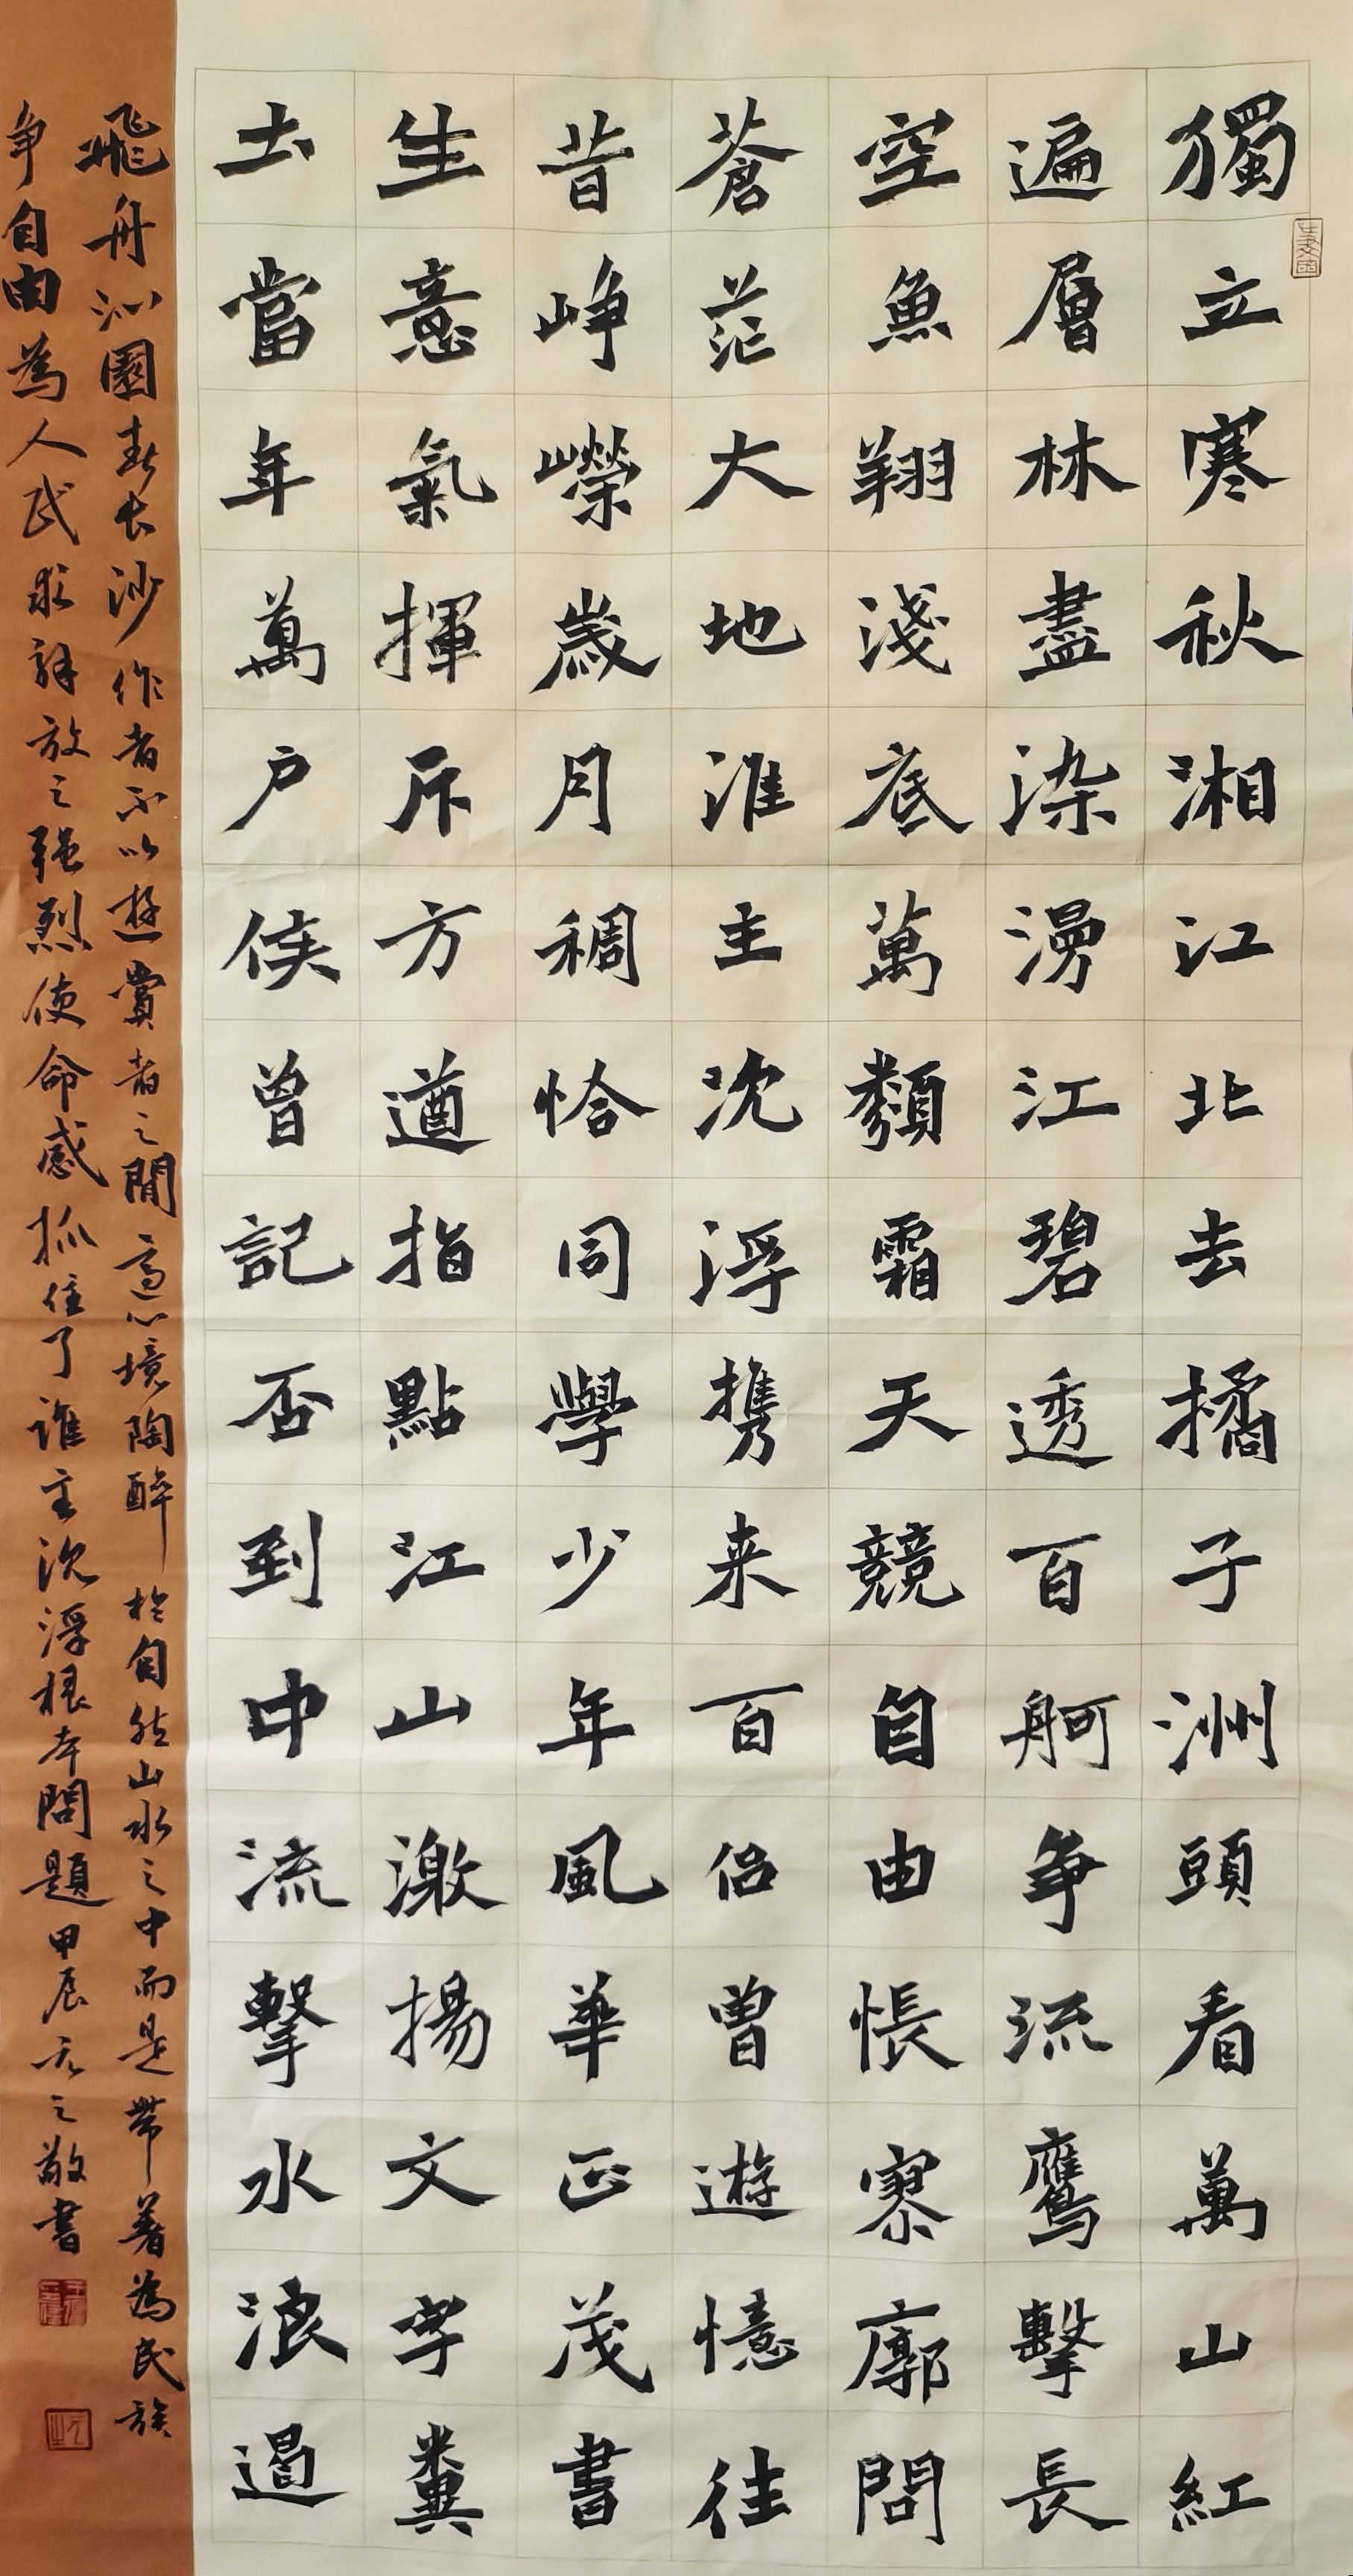 獨立寒秋湘江北去橘子洲頭看萬山紅
遍層林盡染漫江碧透百舸争流鷹擊長
空魚翔淺底萬類霜天競自由悵寥廓問
蒼茫大地淮主沈浮携来百侣曾遊憶往
昔崢嶸歲月稠恰同學少年風華正茂書
生意氣揮斥方遒指點江山激揚文字糞
土當年萬户侯曾記否到中流擊水浪遏
飛舟沁園春长沙作者不以遊賞者之閒適心境陶醉於自然山水之中而是帶著為民族
争自由為人民求解放之强烈使命感抓住了誰主沈浮根本問題甲辰元之敬書